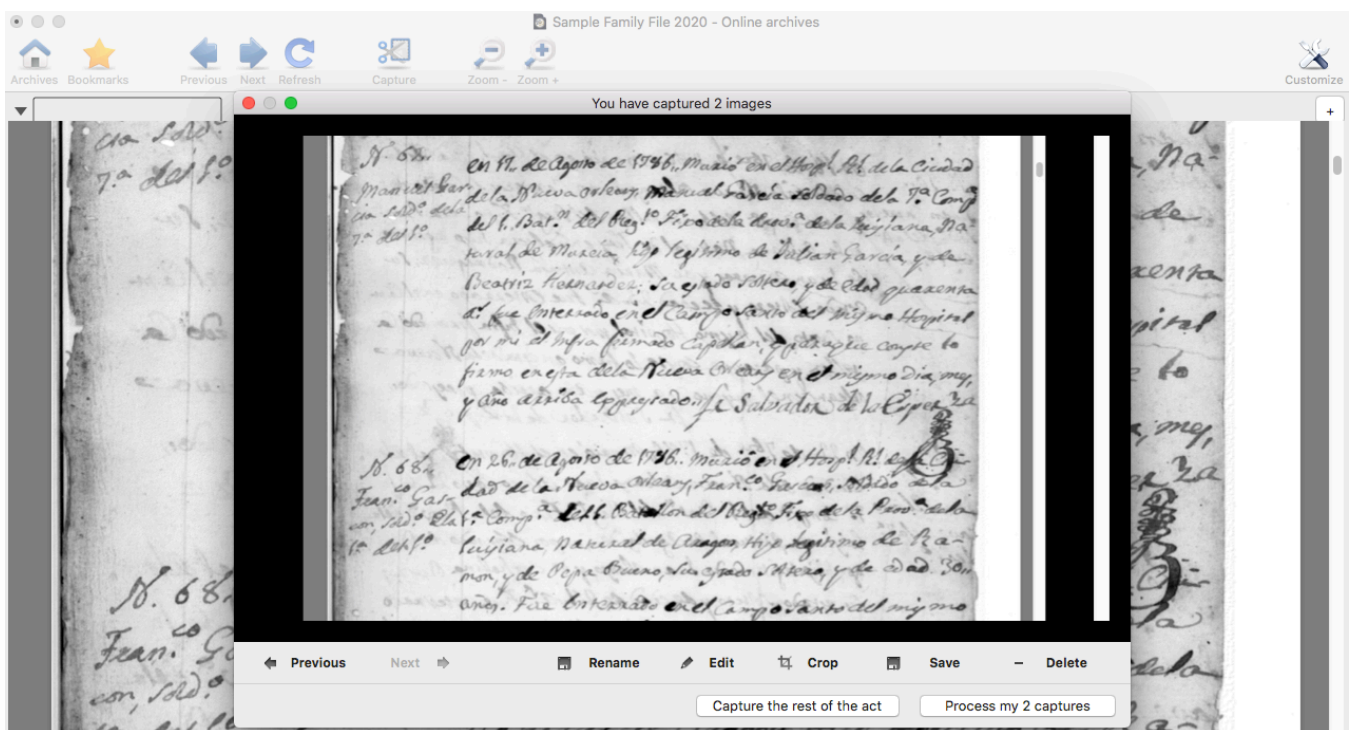 Sample Family File 2020 - Online archives
Archives Bookmarks Previous Next Refresh Capture Zoom - Zoom + Customize
+
You have captured 2 images
N. 67.
Manuel Gar-
cia Sold.º dela
7.ª del 1.º
en 17.. de Agosto de 1786.. Murió en el Hosp.l R.l de la Ciudad
de la Nueva Orleans, Manuel Garcia Soldado dela 7.ª Comp
del 1. Bat.n del Reg.to Fixo de la Prov.a dela Luysiana, Na-
tural de Murcia hijo legitimo de Julian Garcia, y de
Beatriz Hernandez; Su estado soltero, y de edad quarenta
a.s fue Enterrado en el Campo Santo del mismo Hospital
por mi el infra firmado Capellan, y para que conste lo
firmo en esta dela Nueva Orleans en el mismo Dia, mes,
y año arriba expresado Salvador de la
N. 68..
Fran.co Gas-
con, Sold.º
1.ª del 1.º
en 26.. de Agosto de 1786.. Murió en el Hosp.l R.l de la Ciu-
dad de la Nueva Orleans, Fran.co Gascon, Soldado dela
1.ª Comp.a del 1. Batallon del Reg.to Fixo de la Prov.a dela
Luysiana, Natural de Aragon, Hijo legitimo de Ra-
mon, y de Pepa Bueno, Su estado Soltero, y de edad 30..
años. Fue Enterrado en el Campo Santo del mismo
Previous Next Rename Edit Crop Save Delete
Capture the rest of the act Process my 2 captures
cia Sold.º
7.ª del 1.º
N. 68.
Fran.co Ga
con, Sold.º
Na-
de
renta
pital
lo
mes,
dela